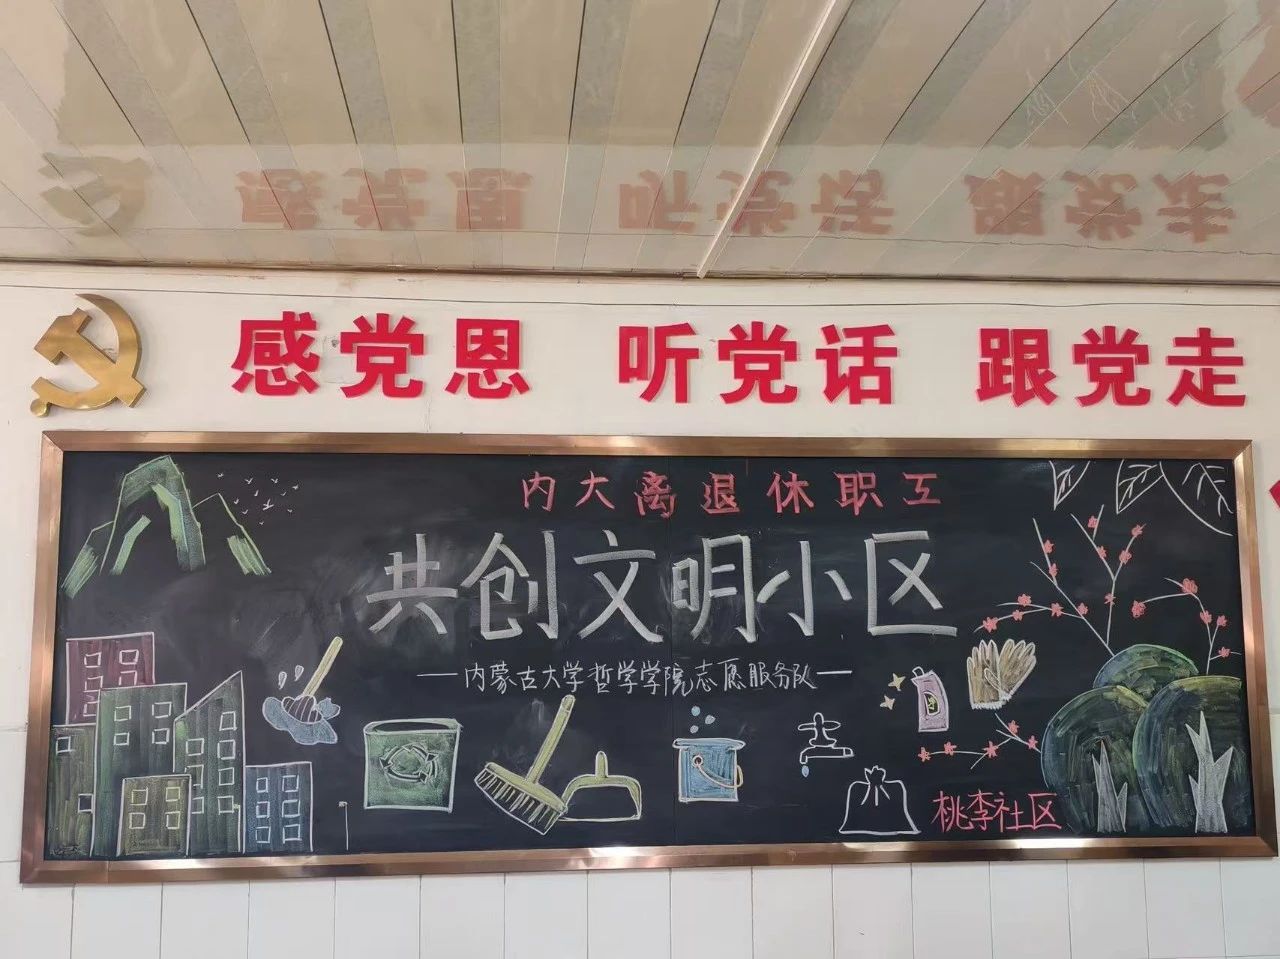 感党恩 听党话 跟党走
内大离退休职工
共创文明小区
—内蒙古大学哲学学院志愿服务队—
桃李社区